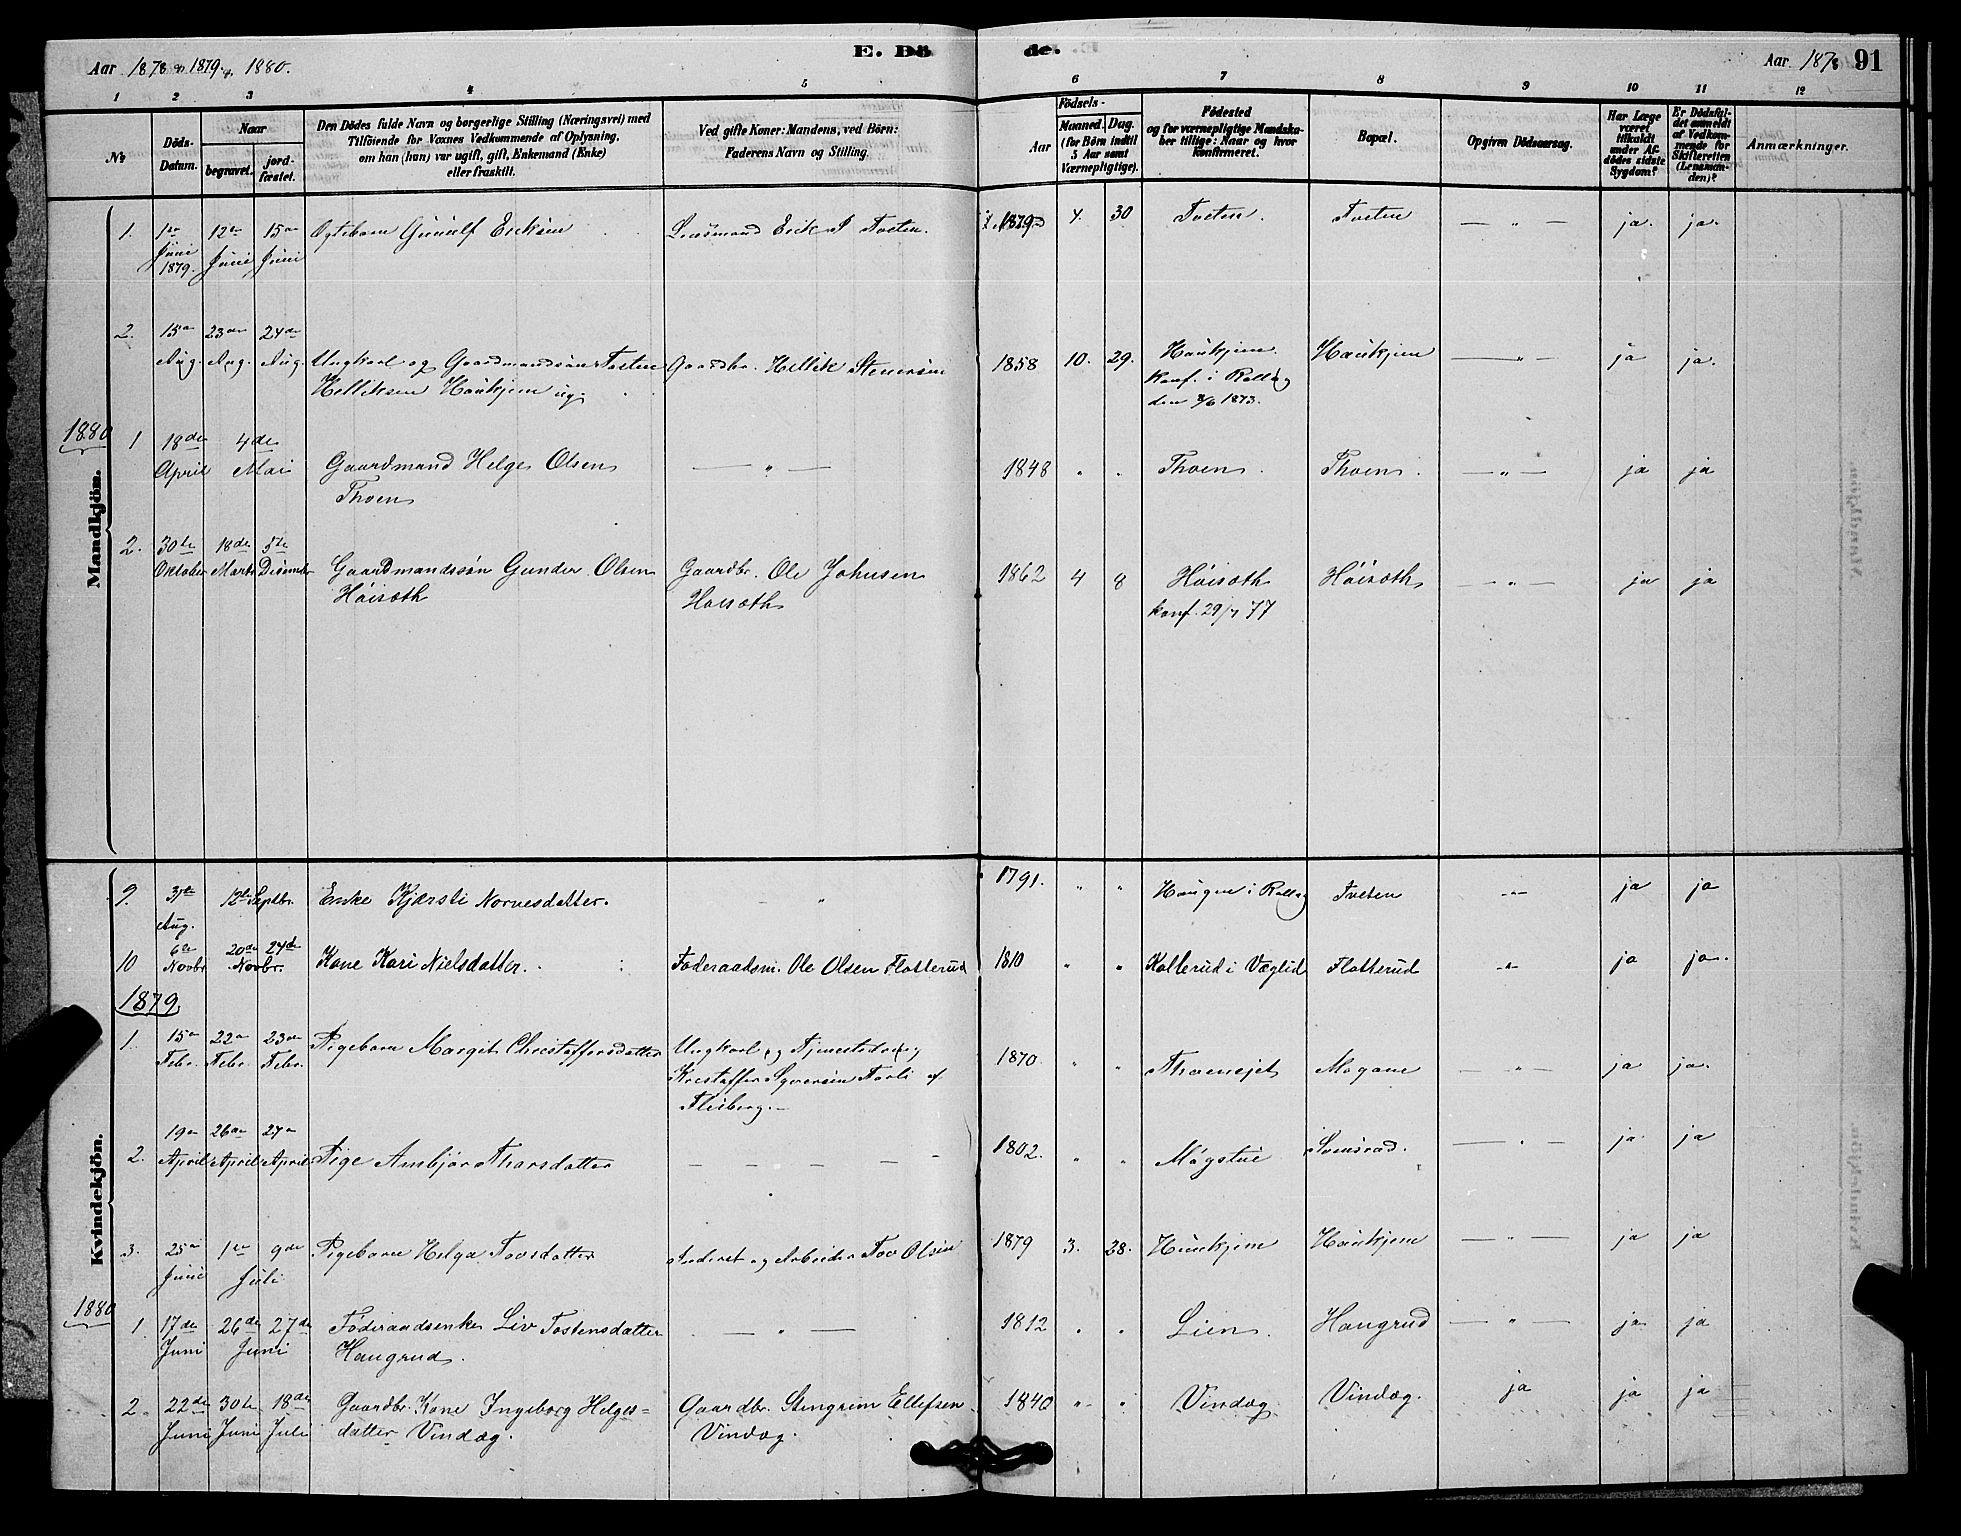 Aar 1878 1879 1880.
E. Dö de.
Aar 187 91
1 2 3 4 5 6 7 8 9 10 11 12
No
Döds-Datum.
Naar
begravet.
jord-fæstet.
Den Dödes fulde Navn og borgerlige Stilling (Næringsvei) med
Tilföiende for Voxnes Vedkommende af Oplysning,
om han (hun) var ugift, gift, Enkemand (Enke)
eller fraskilt.
Ved gifte Koner: Mandens, ved Börn:
Faderens Navn og Stilling.
Födsels-
Aar
Maaned. Dag.
(for Börn indtil
5 Aar samt
Værnepligtige).
Födested
og for værnepligtige Mandska-
ber tillige: Naar og hvor
konfirmeret.
Bopæl.
Opgiven Dödsaarsag.
Har Læge
været
tilkaldt
under Af-
dödes sidste
Sygdom?
Er Dödsfal-
det anmeldt
af Vedkom-
mende for
Skifteretten
(Lensman-
den)?
Anmærkninger.
Mandkjön.
1. 1ste Juni 1879. 12te Juni 15de Juni Eriksen Lensmand Erik Tveten. 1879 4. 30 Tveten. Tveten — " — ja. ja.
2. 15de Aug. 23de Aug. 24de Aug. Ungkarl og Gaardmandssøn Tosten
Helliksen Haukjem ug. Gaardbr. Hellik Stenersen 1858 10. 29. Haukjem.
konf. i Rollag
den 8/6 1873. Haukjem — " — ja ja.
1880
1 18de April 4de Mai Gaardmand Helge Olsen
Thoen — " — 1848 " " Thoen. Thoen. — " — ja ja
2. 30te Oktober 18de Marts 5te Disember Gaardmandssøn Gunder Olsen
Høisæth Gaardbr. Ole Johnsen
Høisæth 1862 4 8 Høisæth
konf. 29/7 77 Høisæth — " — ja ja
Kvindekjön.
9. Aug. 12te Septbr. Enke Kjersti Norvesdatter. — " 1791. " " Haugen i Rollag Tveten — " — ja ja
10 6te Novbr 20de 24de Novbr. Kone Kari Nielsdatter. Føderaadsm. Ole Olsen Flotterud 1810 " " Kallerud i Væglid Flotterud — " — ja ja.
1879
1. 15de Febr. 22de Febr. 23de Febr. Pigebarn Margit Christoffersdatter Ungkarl og
Kristoffer Syversen
Flesberg. 1870. " " Thoenejet Mogane — " — ja ja.
2. 19de April 26de April 27de April Pige Ambjør Thorsdatter — — — — — 1802. " " Møgstue — " — ja. ja
3. 25de Juni 1ste 9de Juli Pigebarn Helga Tovsdatter Inderst og Arbeider Tov Olsen 1879 3. 28. Haukjem Haukjem — " — ja ja
1880
1. 17de Juni 26de 27de Juni Føderaadsenke Liv Tostensdatter
Haugrud. — " — 1812 " " Lien. Haugrud — " — ja ja
2. 22de Juni 30te Juni 18de Juli Gaardbr. Kone Ingeborg Helges=
datter Vindeg. Gaardbr. Stengrim Ellefsen
Vindeg. 1840 " " Vindeg. Vindeg. ja ja ja